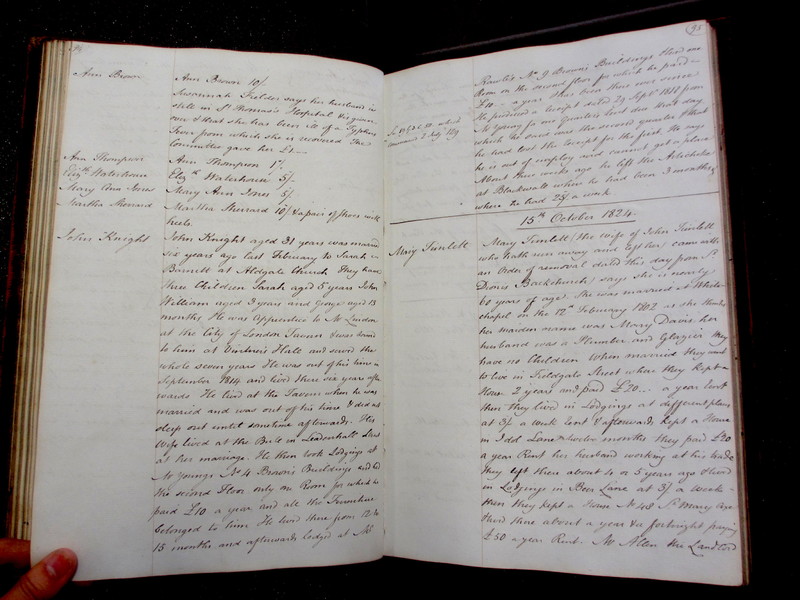 Ann Brown
Ann Brown 10/.
Susannah Fielder says her husband is
still in St Thomas's Hospital the given
over & that she has been ill of a Typhus
Fever from which she is recovered The
Committee gave her £1—
Ann Thompson
Ann Thompson 1/.
Elizth Waterhouse
Elizth Waterhouse 5/.
Mary Ann Jones
Mary Ann Jones 5/.
Martha Sherrard
Martha Sherrard 10/ & a pair of Shoes with
heels.
John Knight
John Knight aged 31 years was married
six years ago last February to Sarah
Barnett at Aldgate Church They have
three Children Sarah aged 5 years John
William aged 3 years and George aged 13
months He was Apprentice to Mr
at the City of London Tavern & was bound
to him at Vintners Hall and served the
whole seven years He was out of his time in
September 1814 and lived there six years after
wards He lived at the Tavern when he was
married and was out of his time & did not
sleep out until sometime afterwards. His
Wife lived at the Bull in Leadenhall Street
at her marriage. He then took Lodgings at
Mr Youngs No 4 Brown's Buildings and had
the second Floor only one Room for which he
paid £10 a year and all the Furniture
belonged to him He lived there from 12 to
15 months and afterwards lodged at Mr
95
Rawle's No 9 Brown's Buildings One
Room on the second floor for which he paid
£10 — a year has been there ever since
He produced a Receipt dated 29 Septr 1818 from
Mr Young for one Quarters Rent due that day
which he said was the second quarter & that
he had lost the Receipt for the first. He says
he is out of employ and cannot get a place
About three weeks ago he left the Artichoke
at Blackwall where he had been 3 months
where he had 25/ a week
15th October 1824
Mary Tunlett
Mary Tunlett (the wife of John Tunlett
who hath run away and left her) came with
an Order of removal dated this day from St
Dionis Backchurch) says she is nearly
60 years of age. She was married at White
chapel on the 12th February 1802 as she thinks
her maiden name was Mary Davie her
husband was a Plumber and Glazier they
have no Children When married they went
to live in Fieldgate Street where they kept a
House 2 years and paid £20 .. a year Rent
then they lived in Lodgings at different places
at 3/. a week Rent & afterwards kept a House
in Idol Lane twelve months they paid £20
a year Rent her husband working at his trade
They left there about 4 or 5 years ago & lived
in Lodgings in Beer Lane at 3/ a week —
then they kept a House No 48 St Mary Axe
& lived there about a year & a fortnight paying
£50 a year Rent. Mr Allen the Landlord